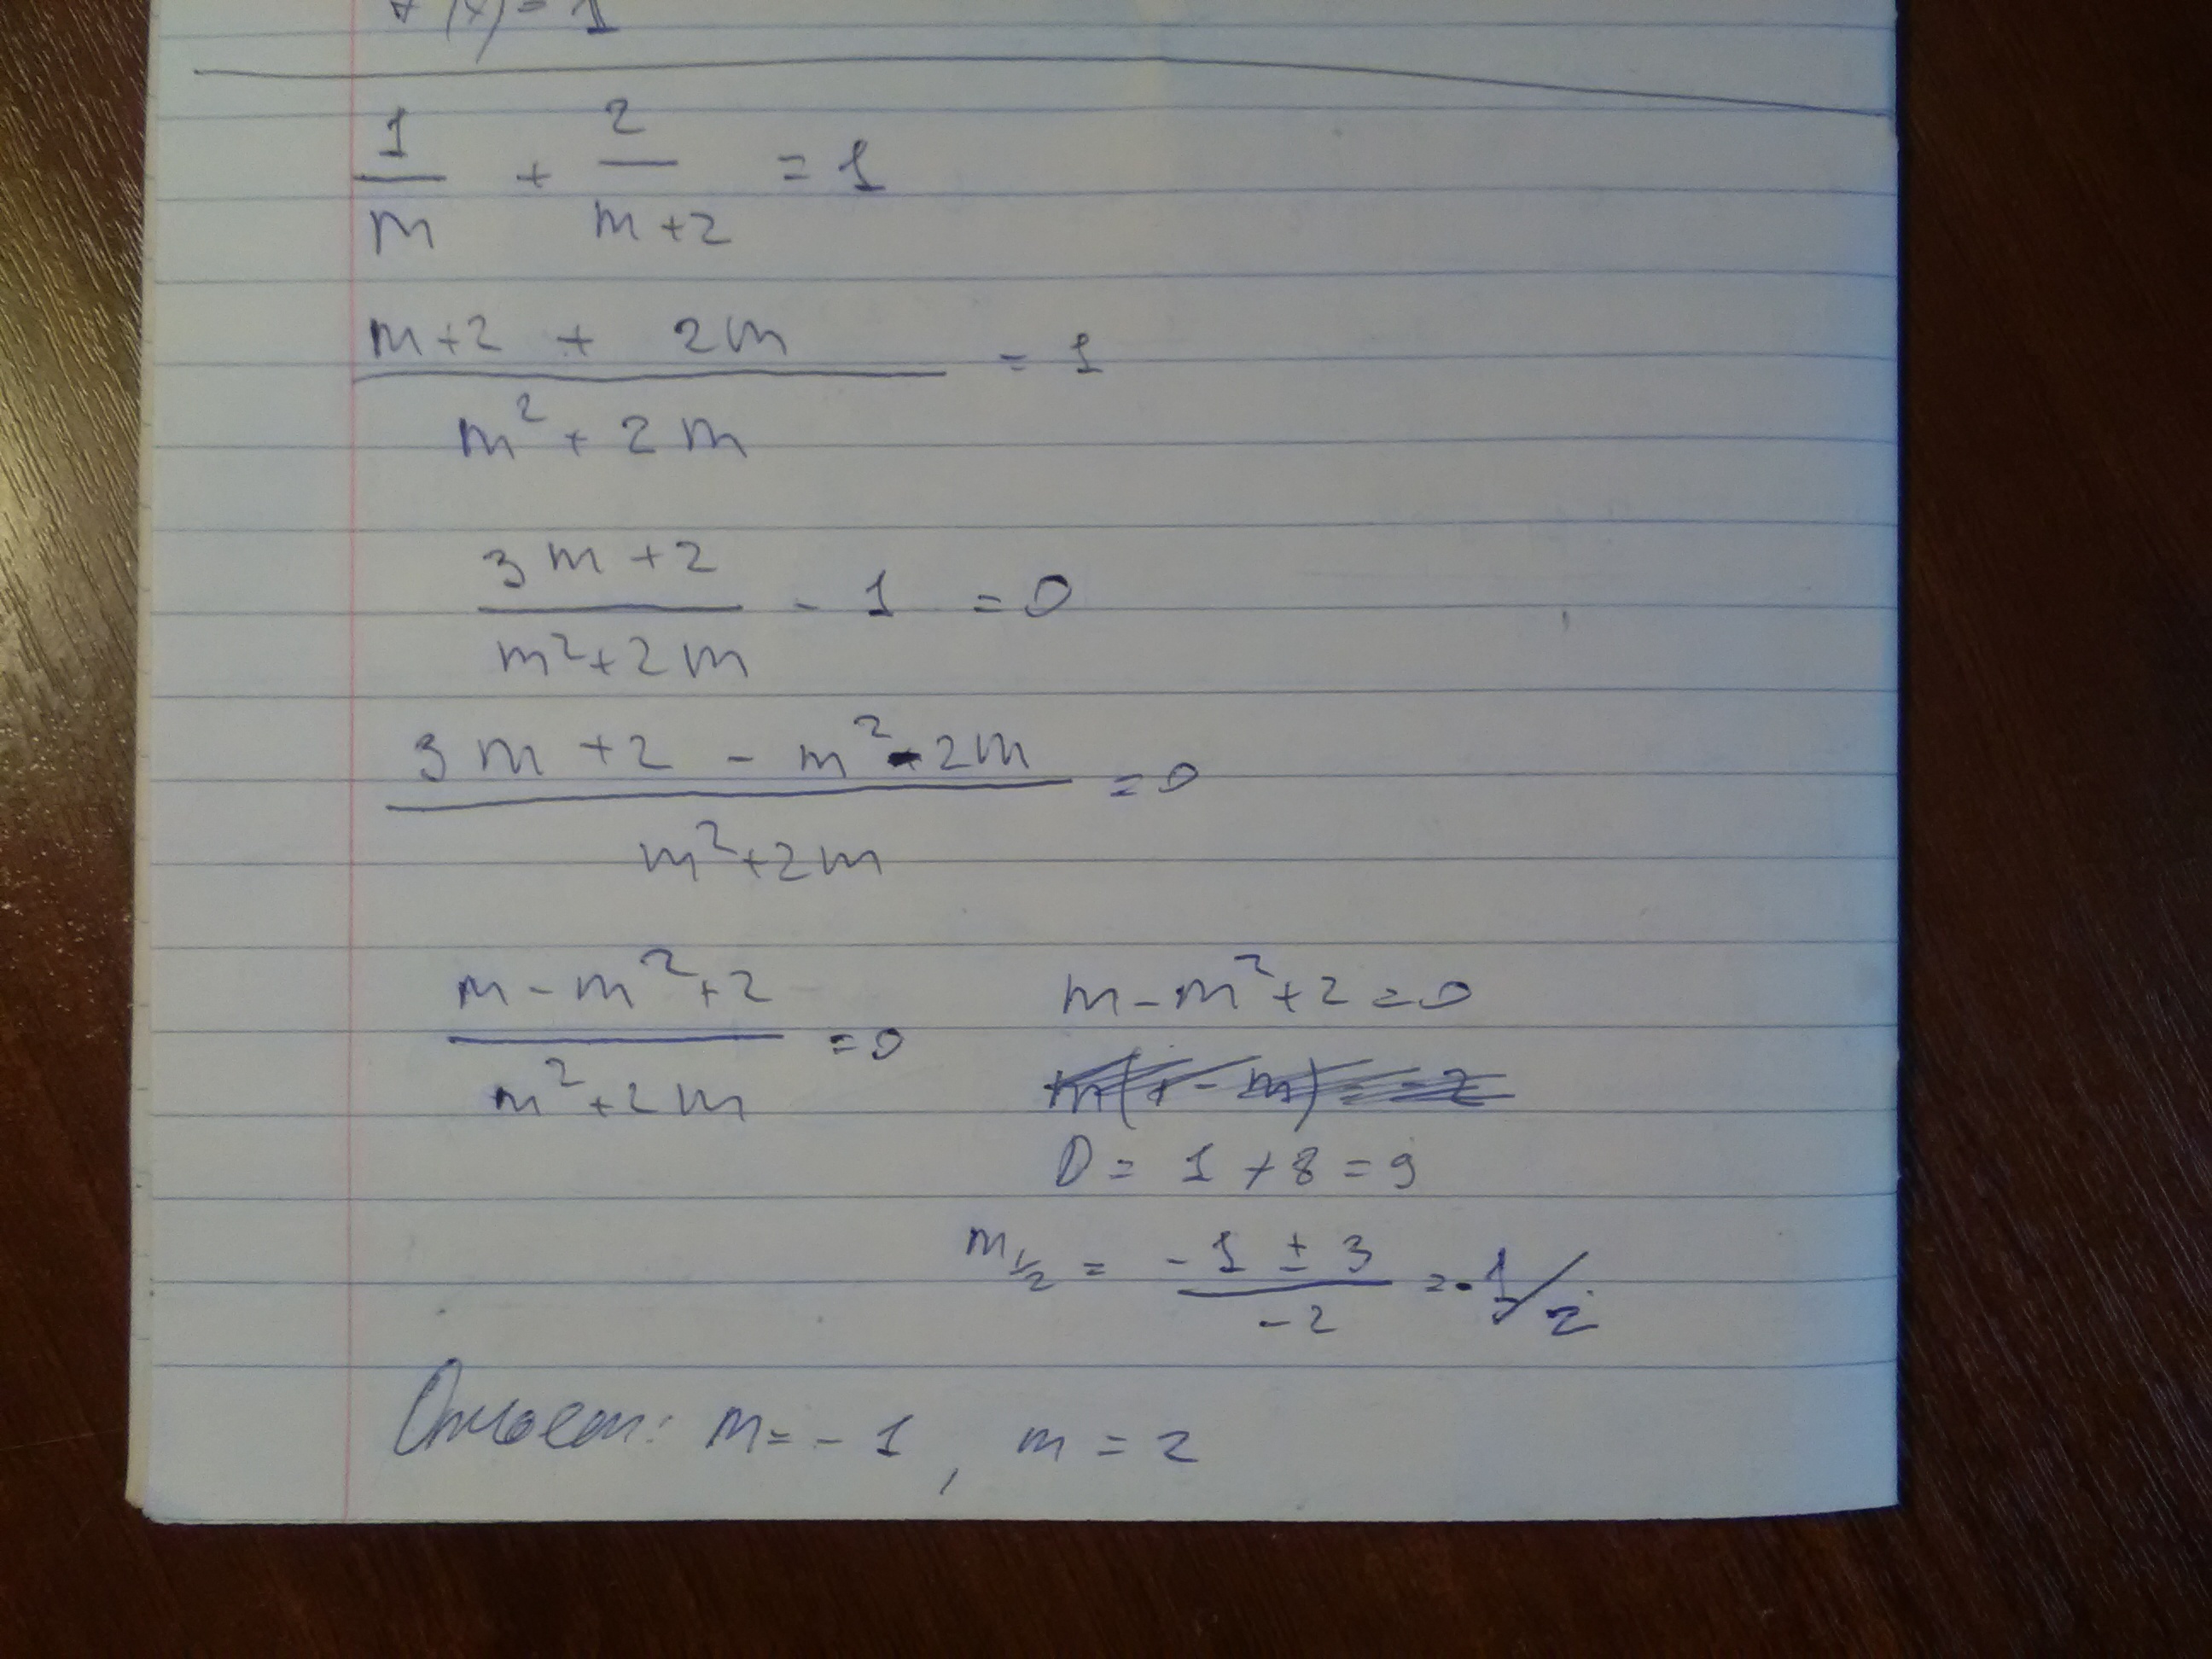 (x) = 1
1/m + 2/(m+2) = 1
(m+2 + 2m)/(m²+2m) = 1
(3m+2)/(m²+2m) - 1 = 0
(3m+2 - m² - 2m)/(m²+2m) = 0
(m-m²+2)/(m²+2m) = 0
m-m²+2=0
D = 1+8=9
m₁/₂ = (-1 ± 3)/(-2) = -1/2
Ответ: m=-1, m=2